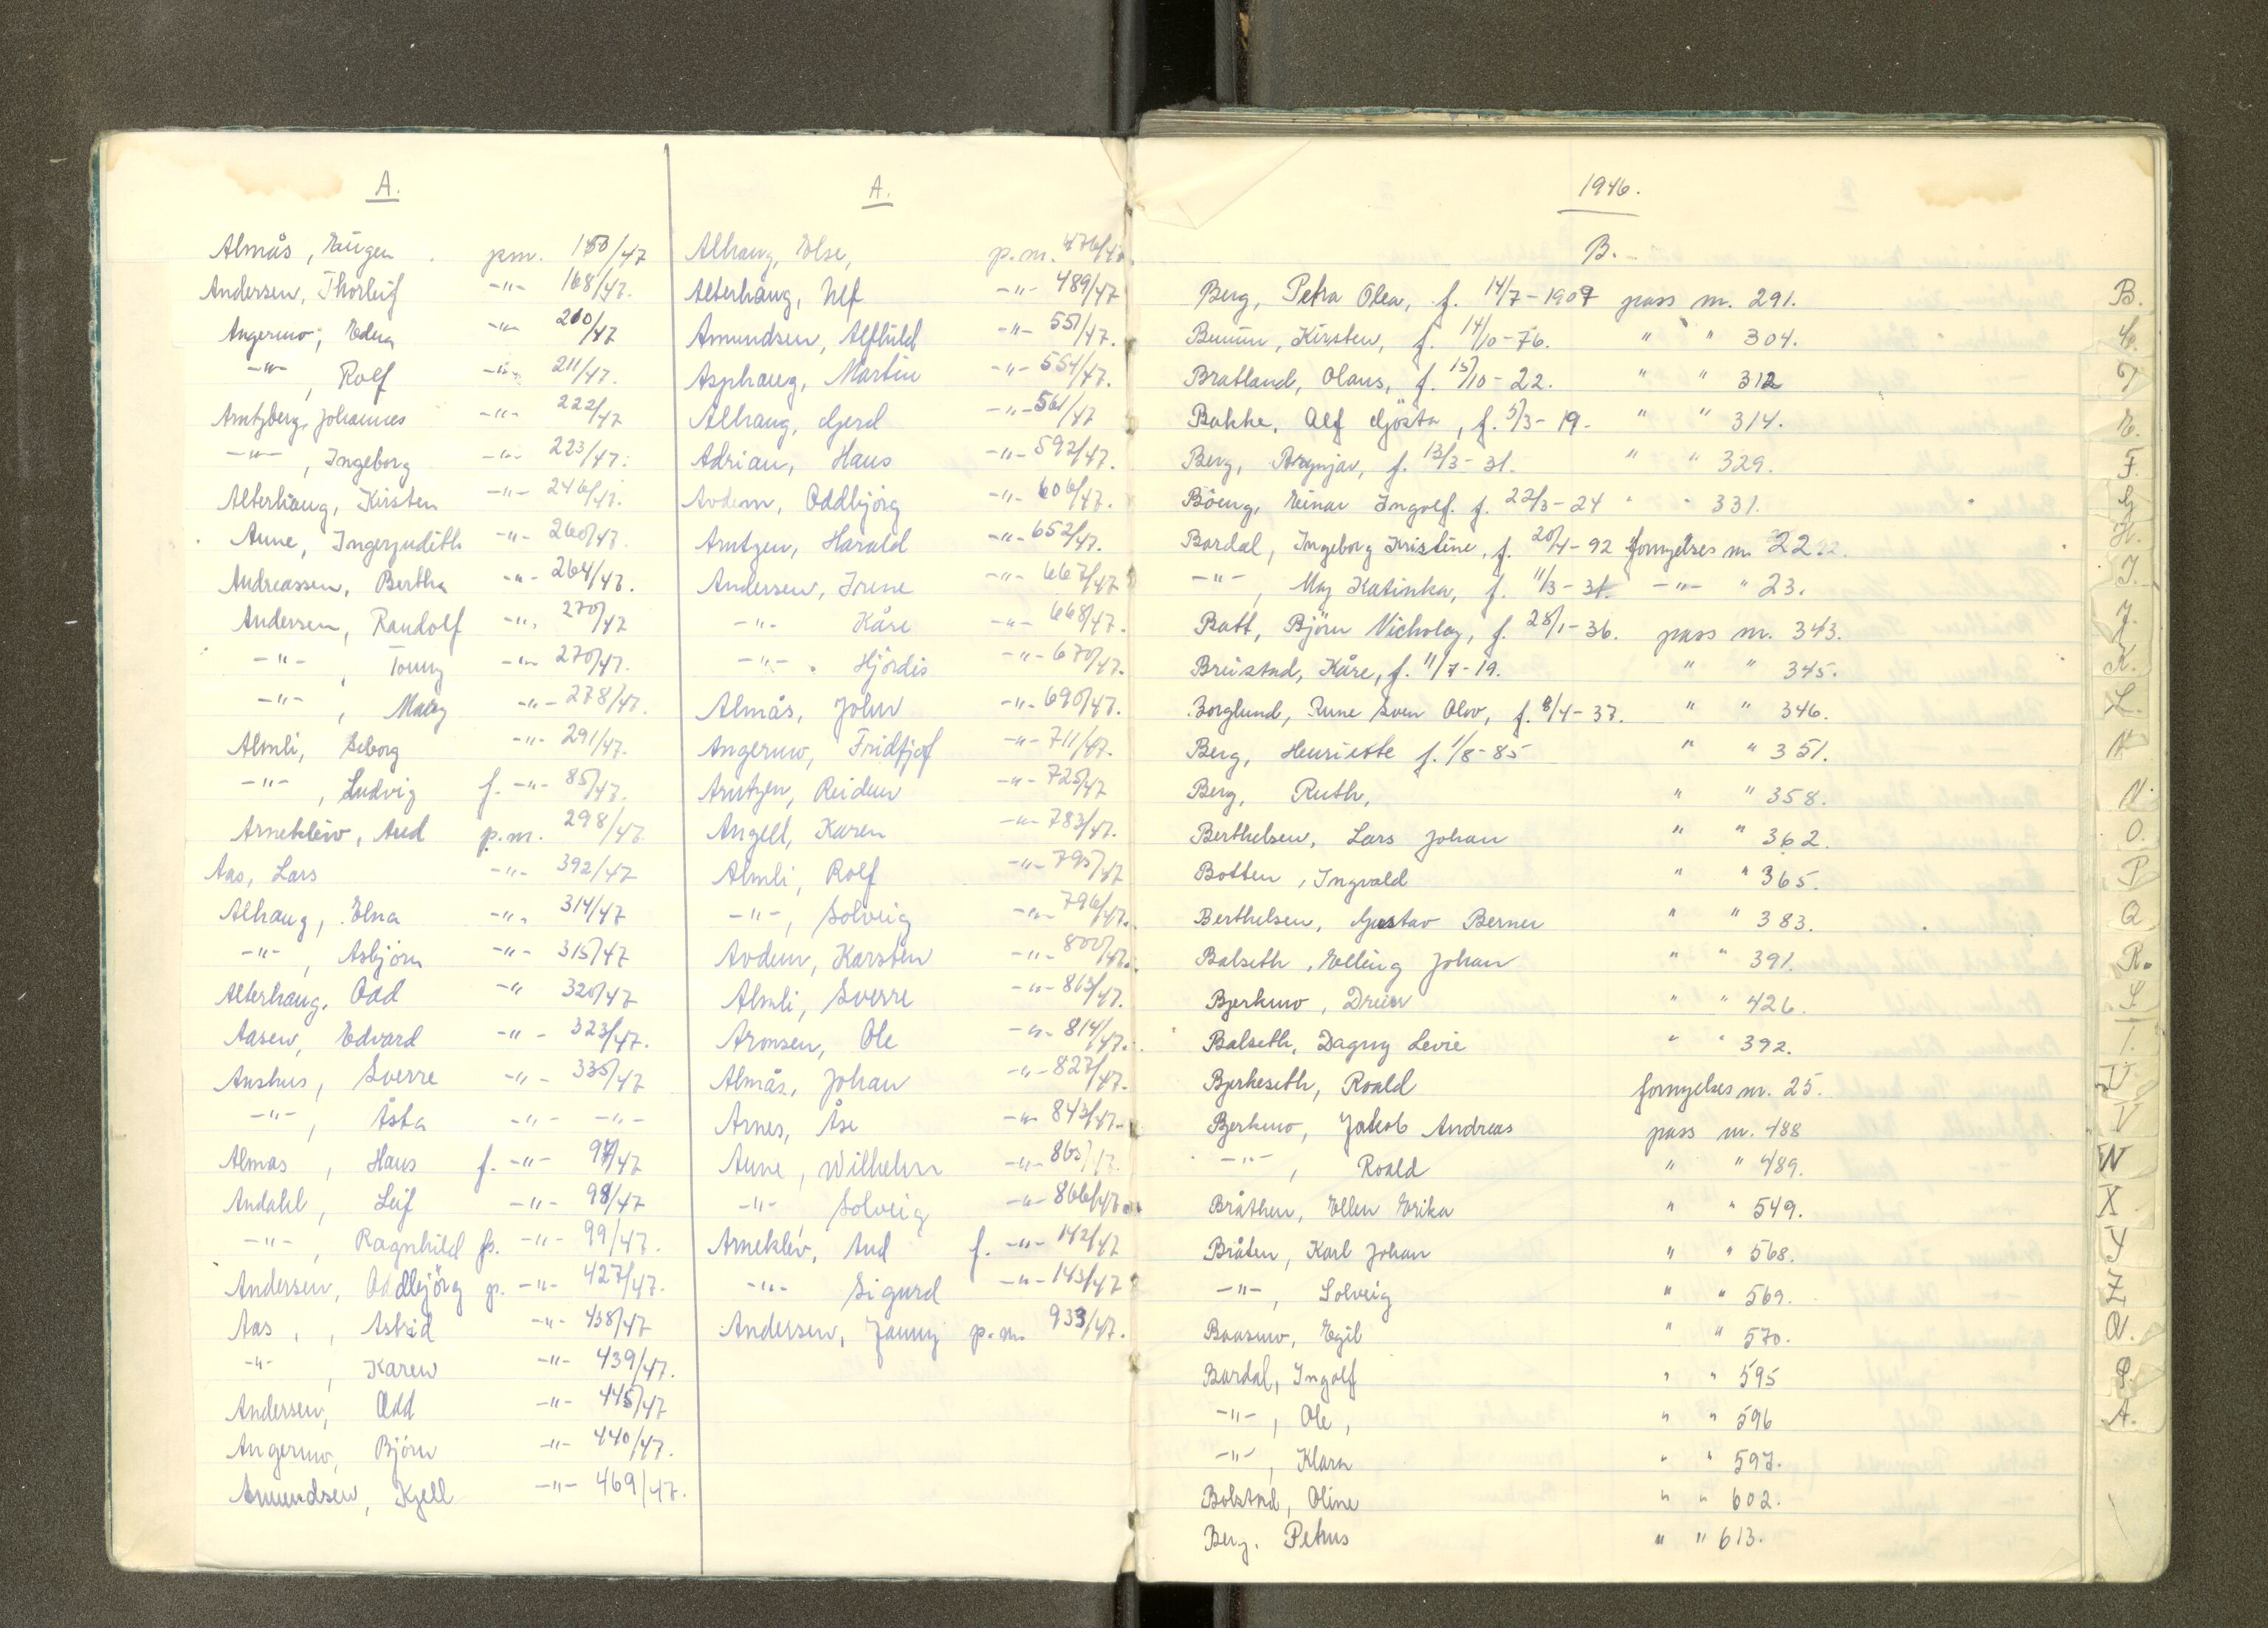 A.
Almås, Eugen pm. 150/47
Andersen, Thorleif -"- 168/47.
Angermo, Edna -"- 210/47
-"-, Rolf -"- 211/47.
Arntzberg, Johannes -"- 222/47
-"-, Ingeborg -"- 223/47.
Alterhaug, Kirsten -"- 246/47.
Aune, Ingerjudith -"- 260/47.
Andreassen, Bertha -"- 264/47.
Andersen, Randolf -"- 270/47
-"-, Tonny -"- 270/47.
-"-, Mary -"- 278/47.
Almli, Seborg -"- 291/47.
-"-, Ludvig f. -"- 85/47.
Arnekleiv, Aud p.m. 298/47.
Aas, Lars -"- 392/47
Alhaug, Elna -"- 314/47
-"-, Asbjørn -"- 315/47
Alterhaug, Odd -"- 320/47
Aasen, Edvard -"- 323/47.
Aushus, Sverre -"- 335/47
-"-, Åsta -"- -"-
Almås, Hans f. -"- 97/47
Andahl, Leif -"- 98/47
-"-, Ragnhild f. -"- 99/47.
Andersen, Oddbjörg p. -"- 427/47.
Aas, Astrid -"- 438/47
-"-, Karen -"- 439/47.
Andersen, Odd -"- 445/47
Angermo, Björn -"- 440/47.
Amundsen, Kjell -"- 469/47.
A.
Alhaug, Else, p.m. 476/47
Alterhaug, Ulf -"- 489/47
Amundsen, Alfhild -"- 551/47.
Asphaug, Martin -"- 554/47.
Alhaug, Gerd -"- 561/47
Adrian, Hans -"- 592/47.
Avdem, Oddbjörg -"- 606/47.
Arntzen, Harald -"- 652/47.
Andersen, Irene -"- 667/47
-"- Kåre -"- 668/47.
-"- Hjördis -"- 670/47.
Almås, John -"- 690/47.
Angermo, Fridtjof -"- 711/47.
Arntzen, Reidun -"- 725/47
Angell, Karen -"- 783/47.
Almli, Rolf -"- 795/47
-"-, Solveig -"- 796/47.
Avdem, Karsten -"- 800/47.
Almli, Sverre -"- 863/47.
Aronsen, Ole -"- 814/47.
Almås, Johan -"- 827/47.
Arnes, Åse -"- 843/47.
Aune, Wilhelm -"- 865/47.
-"- Solveig -"- 866/47.
Arneklev, Aud f. -"- 142/47
-"- Sigurd -"- 143/47
Andersen, Jenny p.m. 933/47.
1946.
B.
Berg, Petra Olea, f. 14/7-1907 pass nr. 291.
Buum, Kirsten, f. 14/10-76. " " 304.
Bratland, Olaus, f. 15/10-22. " " 312
Bakke, Alf Gösta, f. 5/3-19. " " 314.
Berg, Brynjar, f. 13/3-31. " " 329.
Böeng, Einar Ingolf. f. 22/3-24 " " 331.
Bardal, Ingeborg Kristine, f. 20/4-92 fornyelses nr. 22
-"-, May Katinka, f. 11/3-31. -"- " 23.
Batt, Björn Nicholay, f. 28/1-36. pass nr. 343.
Breistad, Kåre, f. 11/7-19. " " 345.
Borglund, Rune Sven Olov, f. 8/4-37. " " 346.
Berg, Henriette f. 1/8-85 " " 351.
Berg, Ruth, " " 358.
Berthelsen, Lars Johan " " 362.
Botten, Ingvald " " 365.
Berthelsen, Gustav Berner " " 383.
Balseth, Elling Johan " " 391.
Bjerkmo, Dreier " " 426.
Balseth, Dagny Levie " " 392.
Bjerkeseth, Roald fornyelses nr. 25.
Bjerkmo, Jakob Andreas pass nr. 488
-"-, Roald " " 489.
Bråthen, Ellen Erika " " 549.
Bråten, Karl Johan " " 568.
-"-, Solveig " " 569.
Baasmo, Egil " " 570.
Bardal, Ingolf " " 595
-"-, Ole, " " 596
-"-, Klara " " 597.
Bolstad, Oline " " 602.
Berg, Petrus " " 613.
B.
E.
F.
G
H.
I.
J.
K.
L.
N.
O.
P
Q
R.
S
T.
U
V
W
X
Y
Z
Ø.
A.